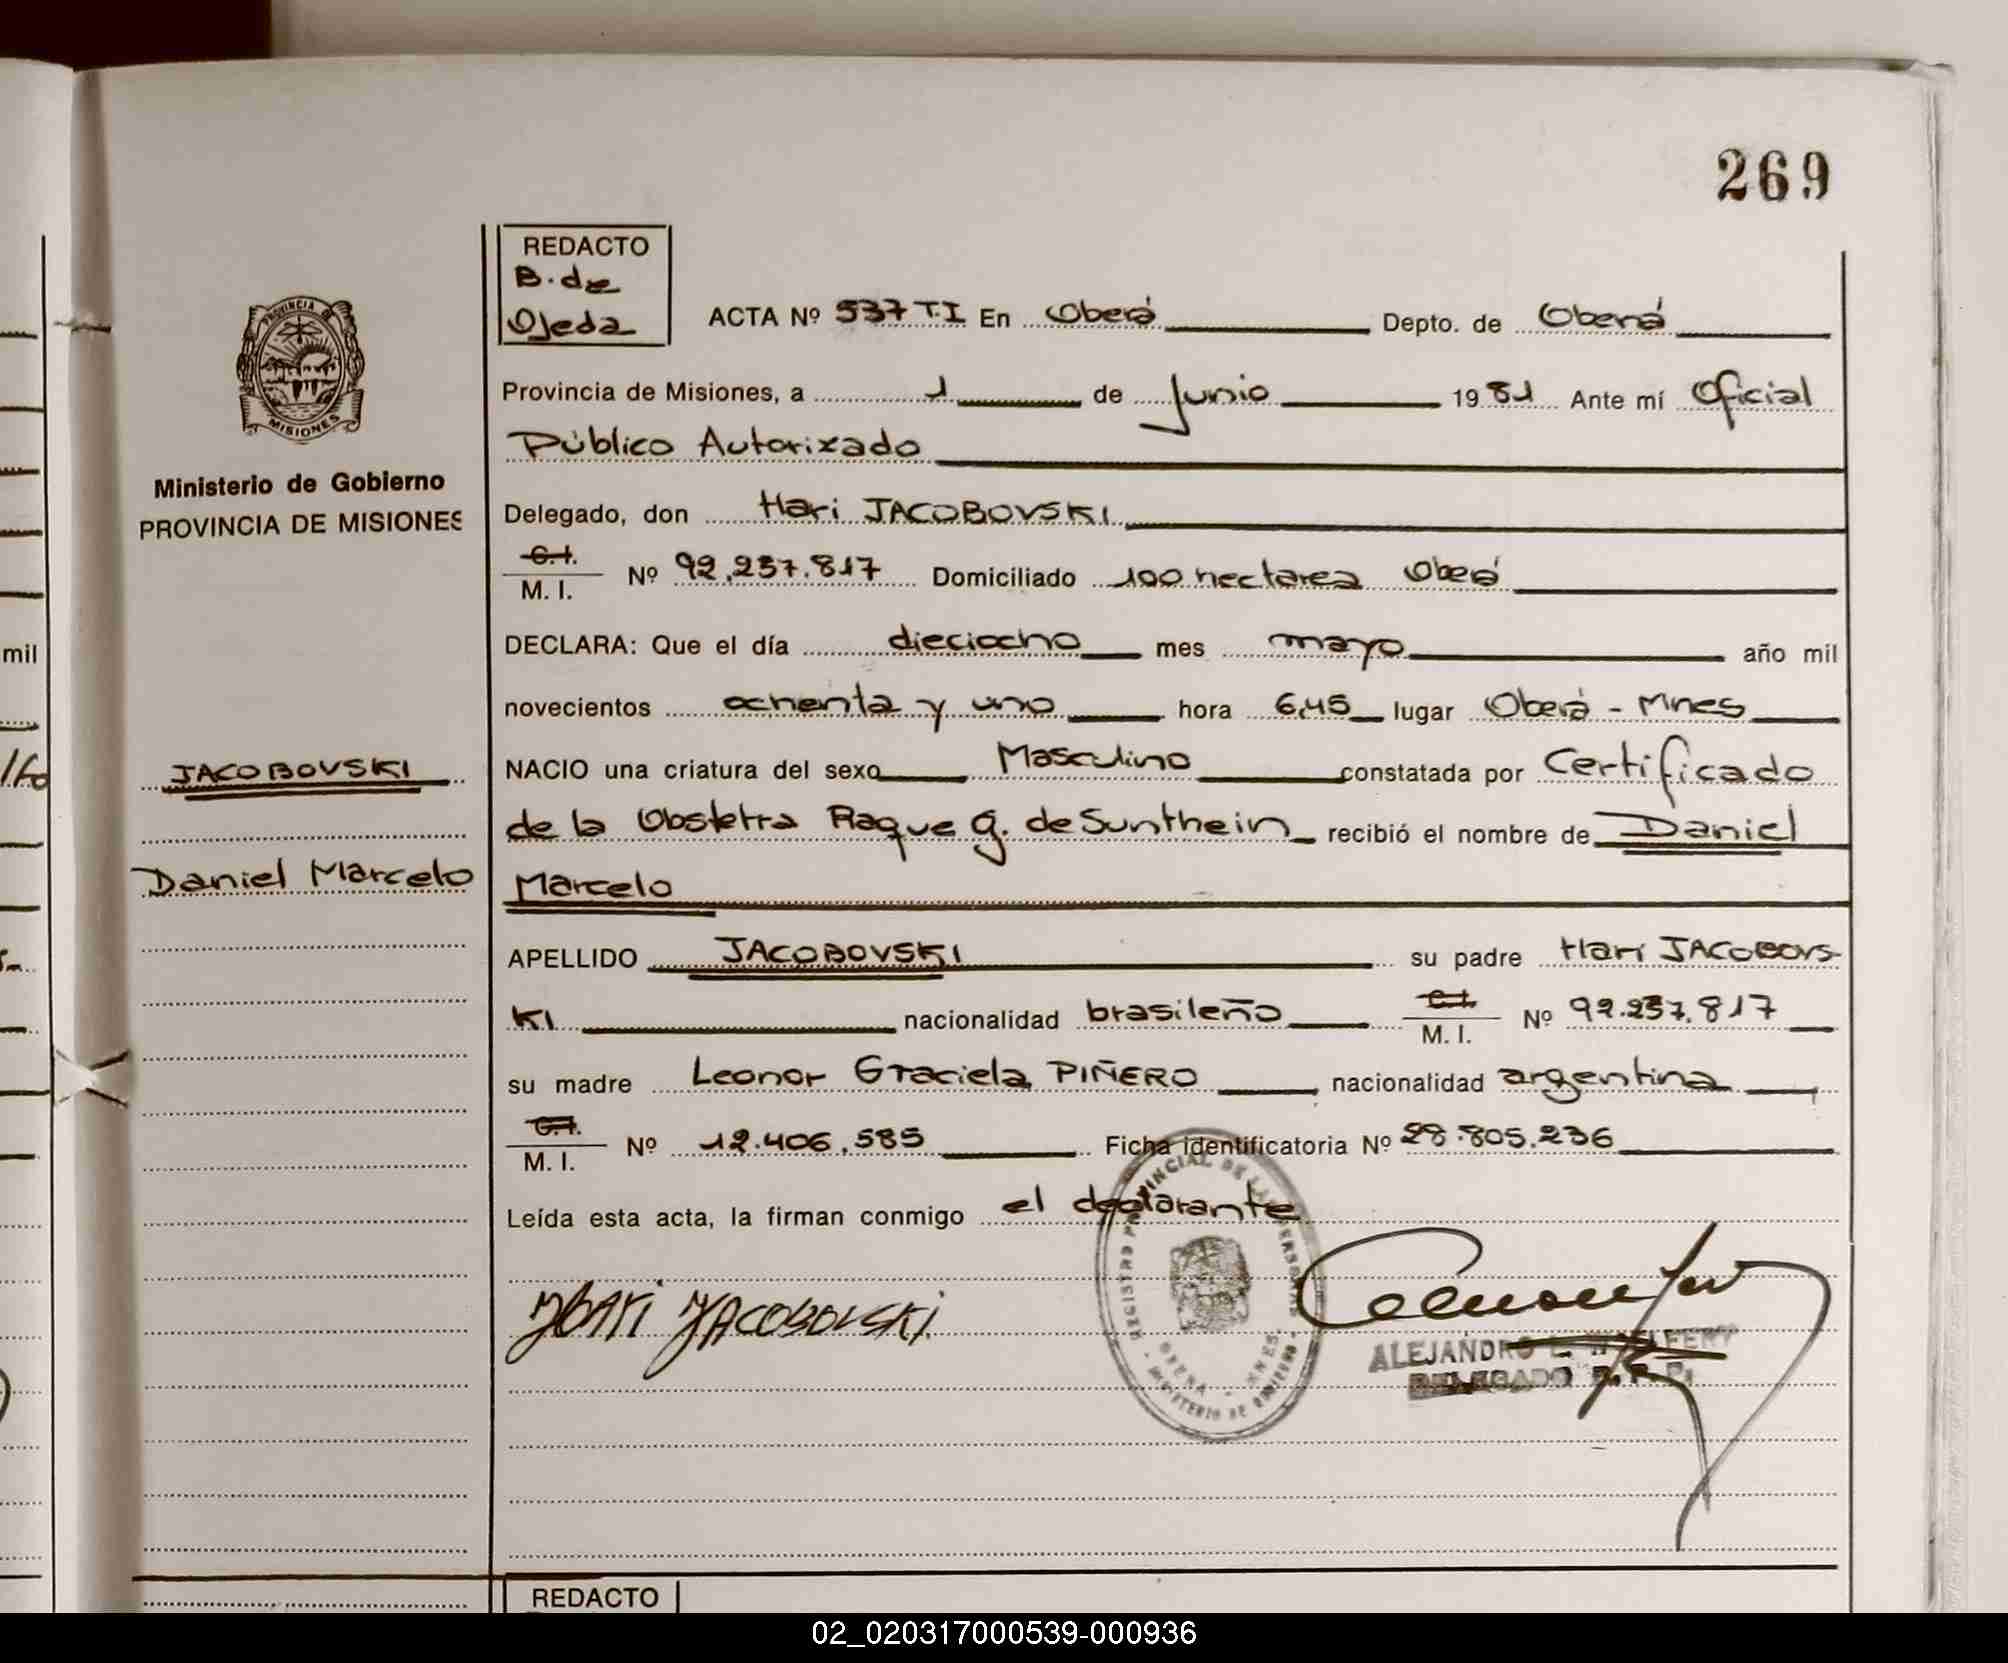 269
REDACTO
B. de
Ojeda
ACTA Nº 537 T.I En Oberá Depto. de Oberá
Provincia de Misiones, a 1 de Junio 1981 Ante mí Oficial
Público Autorizado
PROVINCIA DE
MISIONES
Ministerio de Gobierno
PROVINCIA DE MISIONES
Delegado, don Hari JACOBOVSKI
C.I.
M. I. Nº 92.237.817 Domiciliado 100 hectarea Oberá
DECLARA: Que el día dieciocho mes mayo año mil
mil
novecientos ochenta y uno hora 6,45 lugar Oberá - Mnes
JACOBOVSKI
NACIO una criatura del sexo Masculino constatada por Certificado
de la Obstetra Raque G. de Sunthein recibió el nombre de Daniel
Daniel Marcelo
Marcelo
APELLIDO JACOBOVSKI su padre Hari JACOBOVS-
KI nacionalidad brasileño C.I. M. I. Nº 92.237.817
su madre Leonor Graciela PIÑERO nacionalidad argentina
C.I.
M. I. Nº 12.406.585 Ficha identificatoria Nº 28.805.236
Leída esta acta, la firman conmigo el declarante
Hari JACOBOVSKI
REGISTRO PROVINCIAL DE LAS PERSONAS
OBERA - MNES
MINISTERIO DE GOBIERNO
ALEJANDRO
DELEGADO R. P. P.
REDACTO
02_020317000539-000936